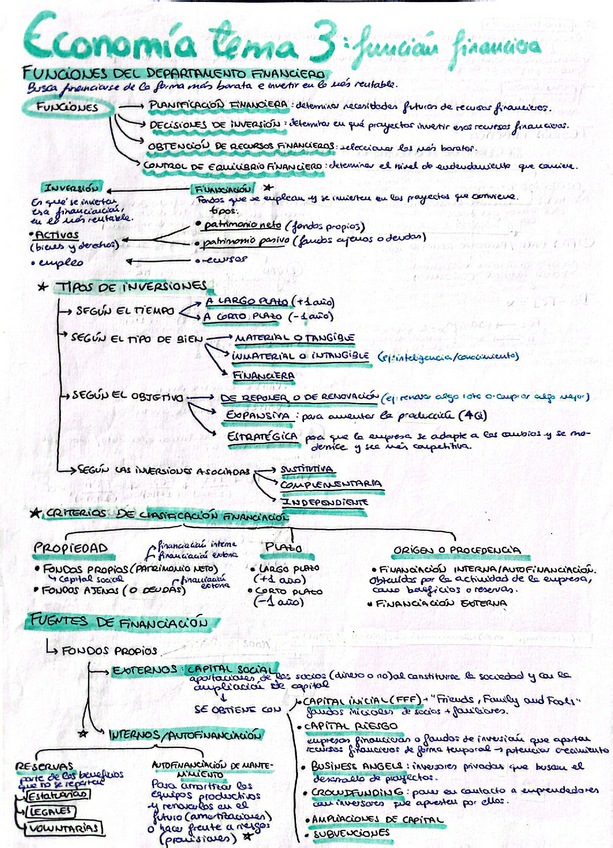 Economía tema 3: función financiera
FUNCIONES DEL DEPARTAMENTO FINANCIERO
Busca financiarse de la forma más barata e invertir en lo más rentable.
FUNCIONES
PLANIFICACIÓN FINANCIERA: determinar necesidades futuras de recursos financieros.
DECISIONES DE INVERSIÓN: determinar en qué proyectos invertir esos recursos financieros.
OBTENCIÓN DE RECURSOS FINANCIEROS: seleccionar los más baratos.
CONTROL DE EQUILIBRIO FINANCIERO: determinar el nivel de endeudamiento que conviene.
INVERSIÓN
En qué se invierte
esa financiación
en lo más rentable.
• ACTIVOS
(bienes y derechos)
• empleo
FINANCIACIÓN *
Fondos que se emplean y se invierten en los proyectos que conviene.
tipos:
• patrimonio neto (fondos propios)
• patrimonio pasivo (fondos ajenos o deudas)
• recursos
* TIPOS DE INVERSIONES
→ SEGÚN EL TIEMPO
A LARGO PLAZO (+1 año)
A CORTO PLAZO (-1 año)
→ SEGÚN EL TIPO DE BIEN
MATERIAL O TANGIBLE
INMATERIAL O INTANGIBLE (ej: inteligencia/conocimiento)
FINANCIERA
→ SEGÚN EL OBJETIVO
DE REPONER O DE RENOVACIÓN (ej: renovar algo roto o comprar algo mejor)
EXPANSIVA: para aumentar la producción (4G)
ESTRATÉGICA para que la empresa se adapte a los cambios y se mo-
dernice y sea más competitiva.
→ SEGÚN LAS INVERSIONES ASOCIADAS
SUSTITUTIVA
COMPLEMENTARIA
INDEPENDIENTE
* CRITERIOS DE CLASIFICACIÓN FINANCIACIÓN
PROPIEDAD
financiación interna
financiación externa
• FONDOS PROPIOS (PATRIMONIO NETO)
↳ capital social
• FONDOS AJENOS (O DEUDAS)
financiación
externa
PLAZO
• LARGO PLAZO
(+1 año)
• CORTO PLAZO
(-1 año)
ORIGEN O PROCEDENCIA
• FINANCIACIÓN INTERNA/AUTOFINANCIACIÓN.
Obtenidos por la actividad de la empresa,
como beneficios o reservas.
• FINANCIACIÓN EXTERNA
FUENTES DE FINANCIACIÓN
↳ FONDOS PROPIOS
EXTERNOS: CAPITAL SOCIAL
aportaciones de los socios (dinero o no) al constituirse la sociedad y con la
ampliación de capital
SE OBTIENE CON
• CAPITAL INICIAL (FFF) → "Friends, Family and Fools"
fondos iniciales de socios + familiares.
• CAPITAL RIESGO
empresas financieras o fondos de inversión que aportan
recursos financieros de forma temporal → potenciar crecimiento
• BUSINESS ANGELS: inversores privados que buscan el
desarrollo de proyectos.
• CROWDFUNDING: poner en contacto a emprendedores
con inversores que apuestan por ellos.
• AMPLIACIONES DE CAPITAL
• SUBVENCIONES
* INTERNOS/AUTOFINANCIACIÓN
RESERVAS
parte de los beneficios
que no se reparten
ESTATUTARIAS
LEGALES
VOLUNTARIAS
AUTOFINANCIACIÓN DE MANTE-
NIMIENTO
Para amortizar los
equipos productivos
y renovarlos en el
futuro (amortizaciones)
o hacer frente a riesgos
(provisiones) *